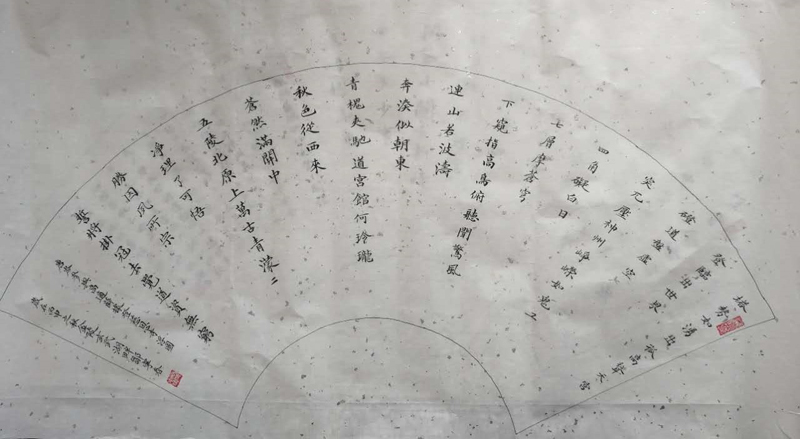 塔勢如湧出孤高聳天宮
登臨出世界
磴道盤虛空
突兀壓神州崢嶸如鬼工
四角礙白日
七層摩蒼穹
下窺指高鳥俯聽聞驚風
連山若波濤
奔湊似朝東
青槐夾馳道宮館何玲瓏
秋色從西來
蒼然滿關中
五陵北原上萬古青濛〻
淨理了可悟
勝因夙所宗
誓將掛冠去覺道資無窮
唐岑參與高適薛據登慈恩寺浮圖